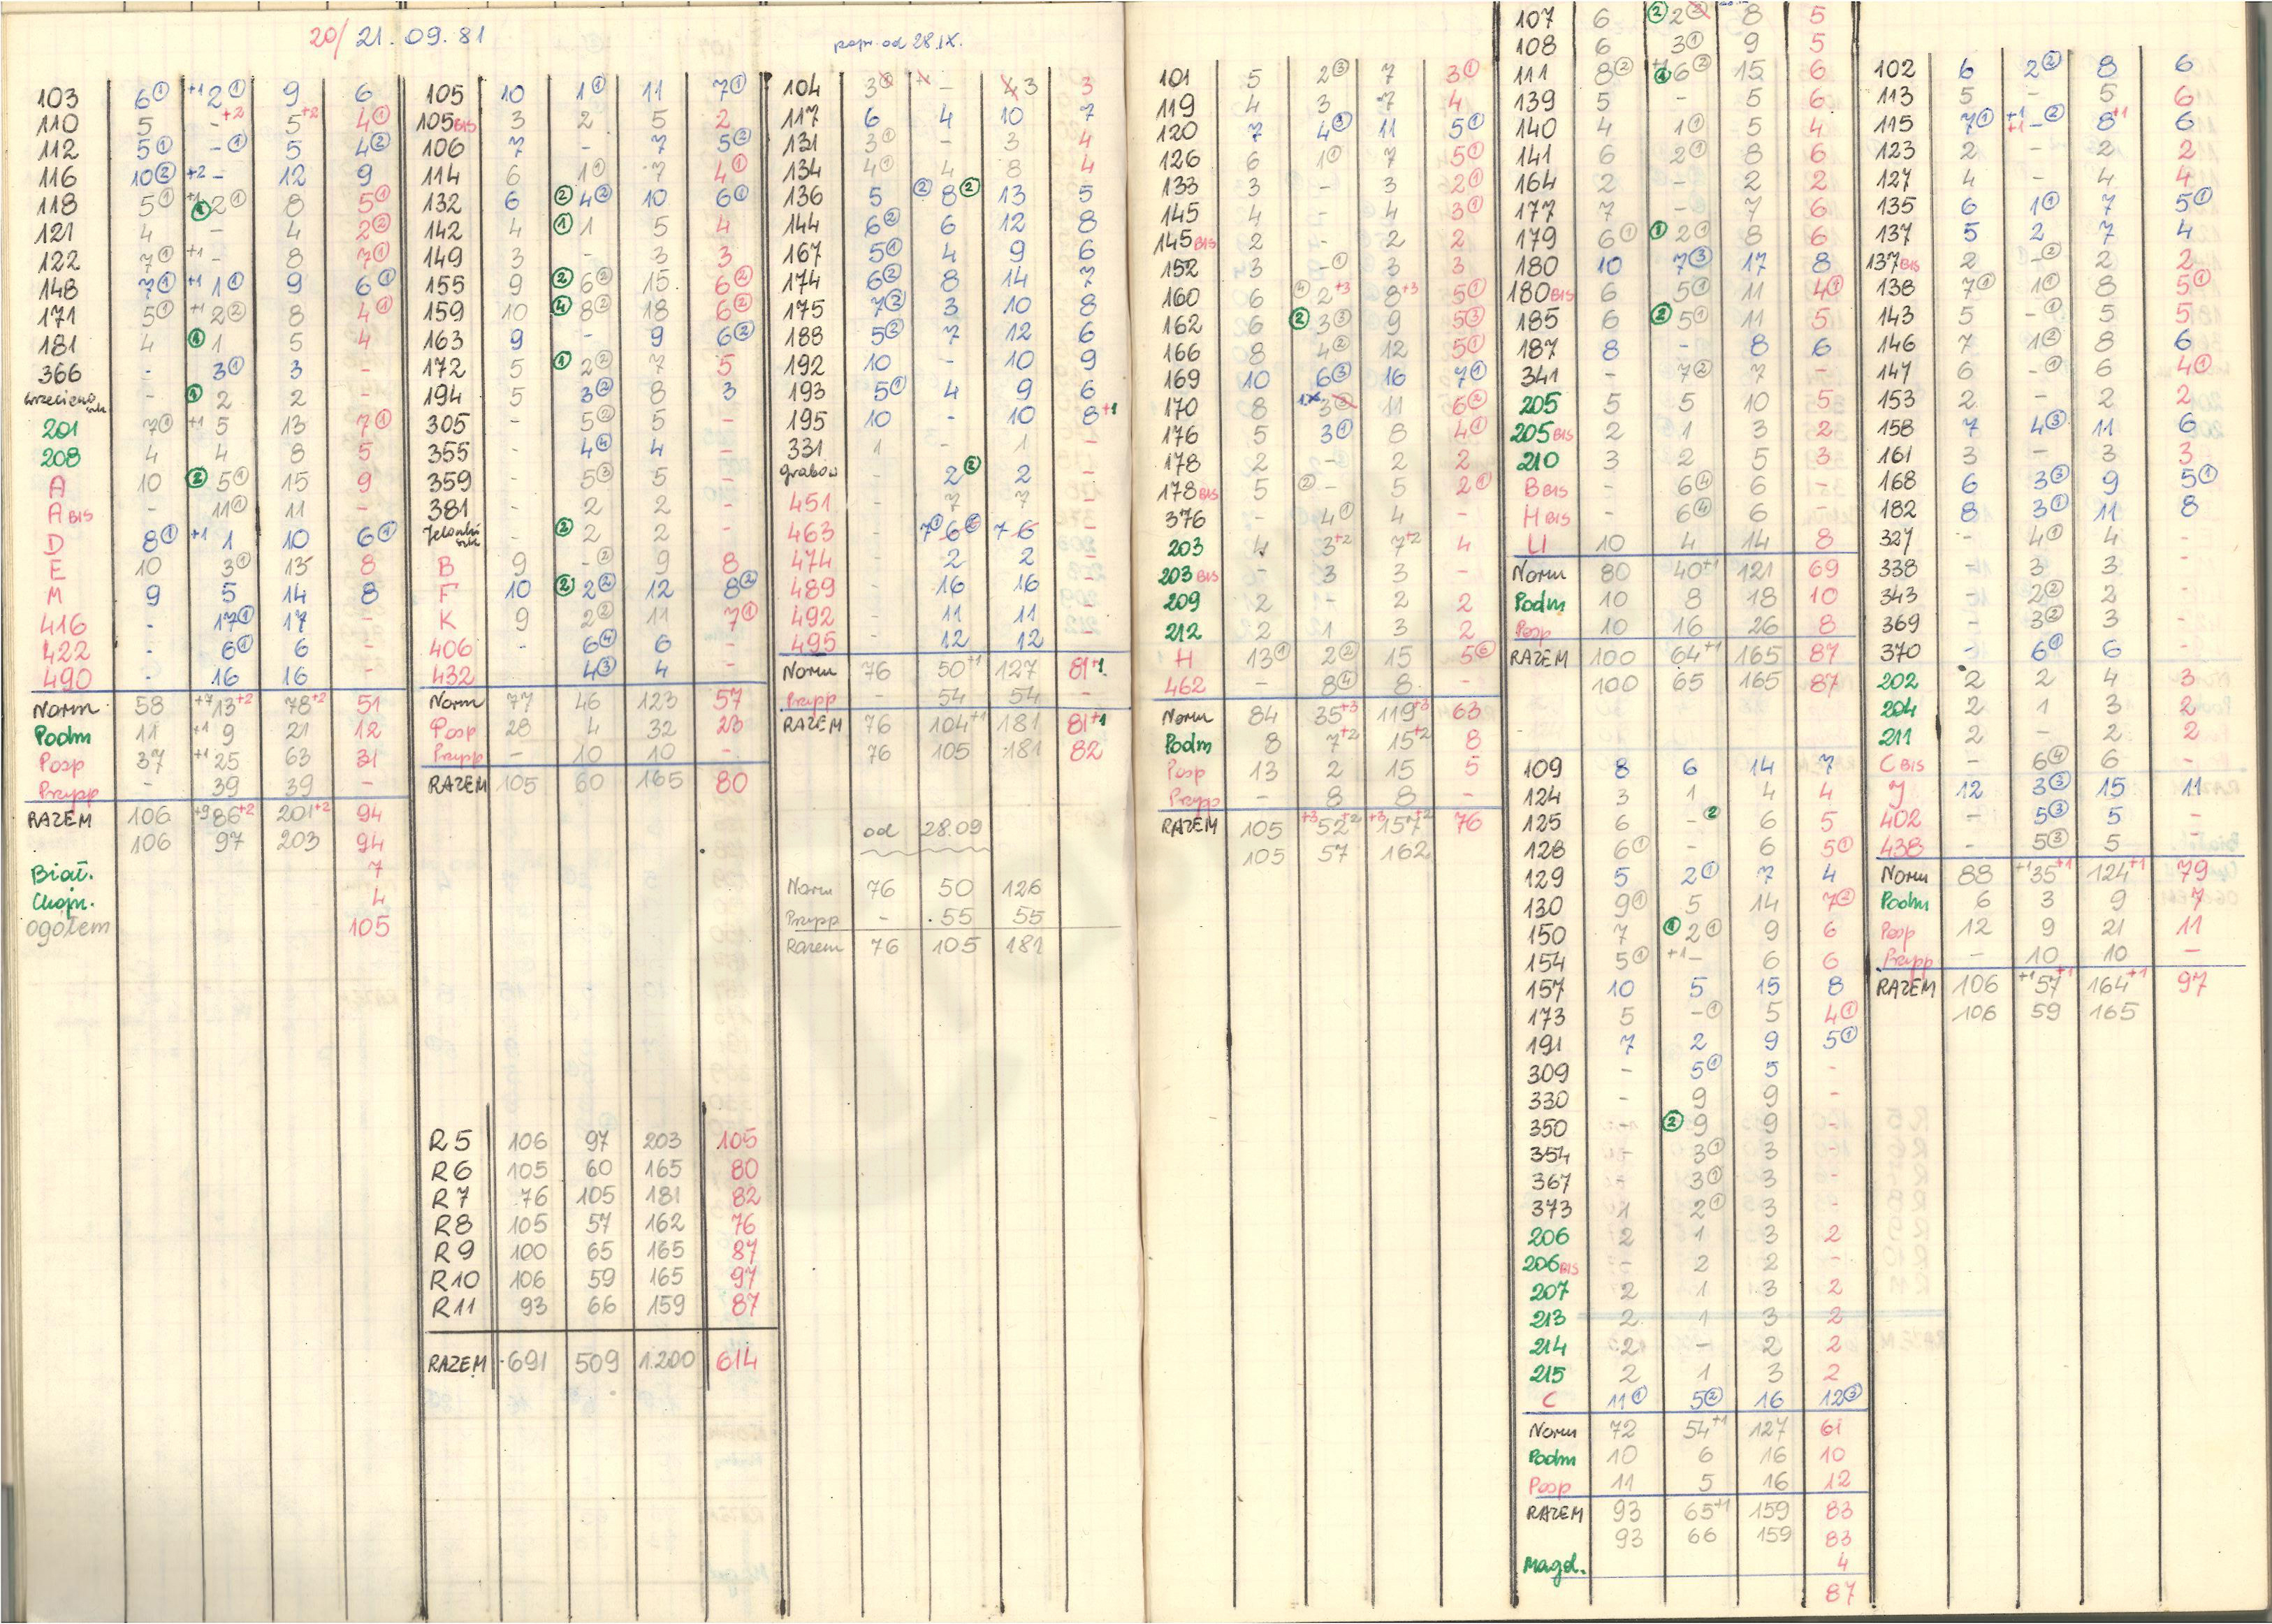 20/21.09.81
103 6① +1 2① 9 6
110 5 - +2 5+2 4①
112 5① -① 5 4②
116 10② +2 - 12 9
118 5① +1 ① 2① 8 5①
121 4 - 4 2②
122 7① +1 - 8 7①
148 7① +1 1① 9 6①
171 5① +1 2② 8 4①
181 4 ① 1 5 4
366 - 3① 3 -
- ① 2 2 -
201 7① +1 5 13 7①
208 4 4 8 5
A 10 ② 5① 15 9
A BIS - 11① 11 -
D 8① +1 1 10 6①
E 10 3① 13 8
M 9 5 14 8
416 - 17① 17 -
422 - 6① 6 -
490 - 16 16 -
Norm 58 +7 13+2 78+2 51
Podm 11 +1 9 21 12
Posp 37 +1 25 63 31
Przypp - 39 39 -
RAZEM 106 +9 86+2 201+2 94
106 97 203 94
Biał. 7
Chojn. 4
Ogółem 105
105 10 1① 11 7①
105 BIS 3 2 5 2
106 7 - 7 5②
114 6 1① 7 4①
132 6 ② 4② 10 6①
142 4 ① 1 5 4
149 3 - 3 3
155 9 ② 6② 15 6②
159 10 ④ 8② 18 6②
163 9 - 9 6②
172 5 ① 2② 7 5
194 5 3② 8 3
305 - 5② 5 -
355 - 4④ 4 -
359 - 5③ 5 -
381 - 2 2 -
Jelonki - ② 2 2 -
B 9 -② 9 8
F 10 ② 2② 12 8②
K 9 2② 11 7①
406 - 6④ 6 -
432 - 4③ 4 -
Norm 77 46 123 57
Posp 28 4 32 23
Przypp - 10 10 -
RAZEM 105 60 165 80
R5 106 97 203 105
R6 105 60 165 80
R7 76 105 181 82
R8 105 57 162 76
R9 100 65 165 87
R10 106 59 165 97
R11 93 66 159 87
RAZEM 691 509 1.200 614
popr. od 28.IX.
104 3 - 4 3 3
117 6 4 10 7
131 3① - 3 4
134 4① 4 8 4
136 5 ② 8② 13 5
144 6② 6 12 8
167 5① 4 9 6
174 6② 8 14 7
175 7② 3 10 8
188 5② 7 12 6
192 10 - 10 9
193 5① 4 9 6
195 10 - 10 8+1
331 1 - 1 -
Grabów - 2② 2 -
451 - 7 7 -
463 - 7① 6 7 6 -
474 - 2 2 -
489 - 16 16 -
492 - 11 11 -
495 - 12 12 -
Norm 76 50+1 127 81+1
Przypp - 54 54 -
RAZEM 76 104+1 181 81+1
76 105 181 82
od 28.09
Norm 76 50 126
Przypp - 55 55
Razem 76 105 181
101 5 2③ 7 3①
119 4 3 7 4
120 7 4③ 11 5①
126 6 1① 7 5①
133 3 - 3 2①
145 4 - 4 3①
145 BIS 2 - 2 2
152 3 -① 3 3
160 6 ④ 2+3 8+3 5①
162 6 ② 3③ 9 5③
166 8 4② 12 5①
169 10 6③ 16 7①
170 8 3② 11 6②
176 5 3① 8 4①
178 2 - 2 2
178 BIS 5 ② - 5 2①
376 - 4① 4 -
203 4 3+2 7+2 4
203 BIS - 3 3 -
209 2 - 2 2
212 2 1 3 2
H 13① 2② 15 5⑥
462 - 8④ 8 -
Norm 84 35+3 119+3 63
Podm 8 7+2 15+2 8
Posp 13 2 15 5
Przyp - 8 8 -
RAZEM 105 +3 52+2 +3 157+2 76
105 57 162
107 6 ② 2② 8 5
108 6 3① 9 5
111 8② +1 ① 6② 15 6
139 5 - 5 6
140 4 1① 5 4
141 6 2① 8 6
164 2 - 2 2
177 7 -① 7 6
179 6① ① 2① 8 6
180 10 7③ 17 8
180 BIS 6 5① 11 4①
185 6 ② 5① 11 5
187 8 - 8 6
341 - 7② 7 -
205 5 5 10 5
205 BIS 2 1 3 2
210 3 2 5 3
B BIS - 6④ 6 -
H BIS - 6④ 6 -
U 10 4 14 8
Norm 80 40+1 121 69
Podm 10 8 18 10
Posp 10 16 26 8
RAZEM 100 64+1 165 87
100 65 165 87
109 8 6 14 7
124 3 1 4 4
125 6 -② 6 5
128 6① - 6 5①
129 5 2① 7 4
130 9① 5 14 7②
150 7 ① 2① 9 6
154 5① +1 - 6 6
157 10 5 15 8
173 5 -① 5 4①
191 7 2 9 5①
309 - 5① 5 -
330 - 9 9 -
350 - ② 9 9 -
354 - 3① 3 -
367 - 3① 3 -
373 1 2① 3 -
206 2 1 3 2
206 BIS - 2 2 -
207 2 1 3 2
213 2 1 3 2
214 2 - 2 2
215 2 1 3 2
C 11① 5② 16 12③
Norm 72 54+1 127 61
Podm 10 6 16 10
Posp 11 5 16 12
RAZEM 93 65+1 159 83
93 66 159 83
Magd. 4
87
102 6 2② 8 6
113 5 - 5 6
115 7① +1 +1 -② 8+1 6
123 2 - 2 2
127 4 - 4 4
135 6 1① 7 5①
137 5 2 7 4
137 BIS 2 -② 2 2
138 7① 1① 8 5①
143 5 -① 5 5
146 7 1② 8 6
147 6 -① 6 4①
153 2 - 2 2
158 7 4③ 11 6
161 3 - 3 3
168 6 3③ 9 5①
182 8 3① 11 8
327 - 4① 4 -
338 - 3 3 -
343 - 2② 2 -
369 - 3② 3 -
370 - 6① 6 -
202 2 2 4 3
204 2 1 3 2
211 2 - 2 2
C BIS - 6④ 6 -
J 12 3③ 15 11
402 - 5③ 5 -
438 - 5③ 5 -
Norm 88 +1 35+1 124+1 79
Podm 6 3 9 7
Posp 12 9 21 11
Przypp - 10 10 -
RAZEM 106 +1 57+1 164+1 97
106 59 165